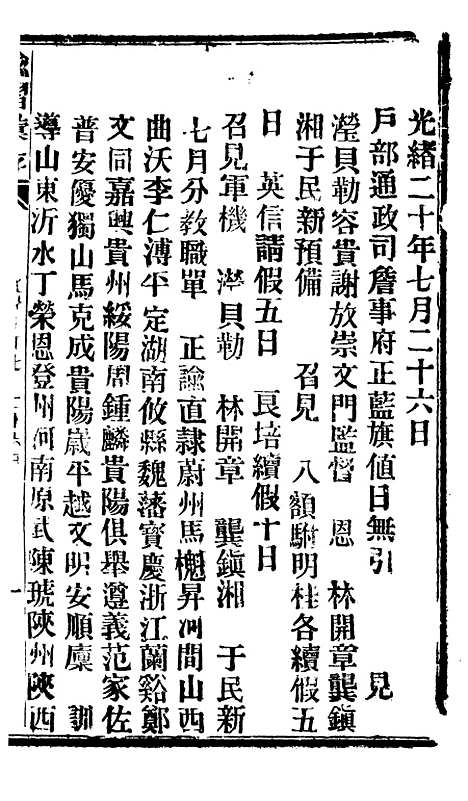 光緒二十年七月二十六日
戶部通政司詹事府正藍旗値日無引　見
瀅貝勒容貴謝放崇文門監督　恩　林開章龔鎭
湘于民新預備　召見　八額駙明桂各續假五
日　英信請假五日　良培續假十日
召見軍機　瀅貝勒　林開章　龔鎭湘　于民新
七月分教職單　正諭直隸蔚州馬櫆昇河間山西
曲沃李仁溥平定湖南攸縣魏藩寳慶浙江蘭谿鄭
文同嘉興貴州綏陽周鍾麟貴陽俱舉遵義范家佐
普安優獨山馬克成貴陽歲平越文明安順廩　訓
導山東沂水丁榮恩登州河南原武陳琥陝州陝西